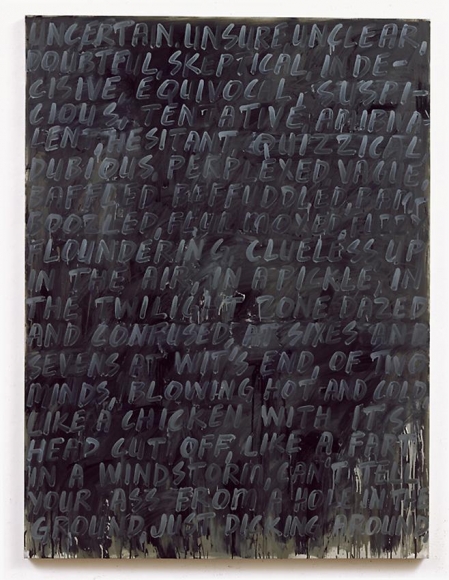 UNCERTAIN, UNSURE, UNCLEAR,
DOUBTFUL, SKEPTICAL, INDE-
CISIVE, EQUIVOCAL, SUSPI-
CIOUS, TENTATIVE, AMBIVA-
LENT, HESITANT, QUIZZICAL,
DUBIOUS, PERPLEXED, VAGUE,
BAFFLED, BEFUDDLED,
FLOUNDERING, CLUELESS, UP
IN THE AIR, IN A PICKLE, IN
THE TWILIGHT ZONE, DAZED
AND CONFUSED, AT SIXES AND
SEVENS, AT WIT'S END, OF TWO
MINDS, BLOWING HOT AND COLD,
LIKE A CHICKEN WITH IT'S
HEAD CUT OFF, LIKE A FART
IN A WINDSTORM, CAN'T TELL
YOUR ASS FROM A HOLE IN THE
GROUND, JUST DICKING AROUND